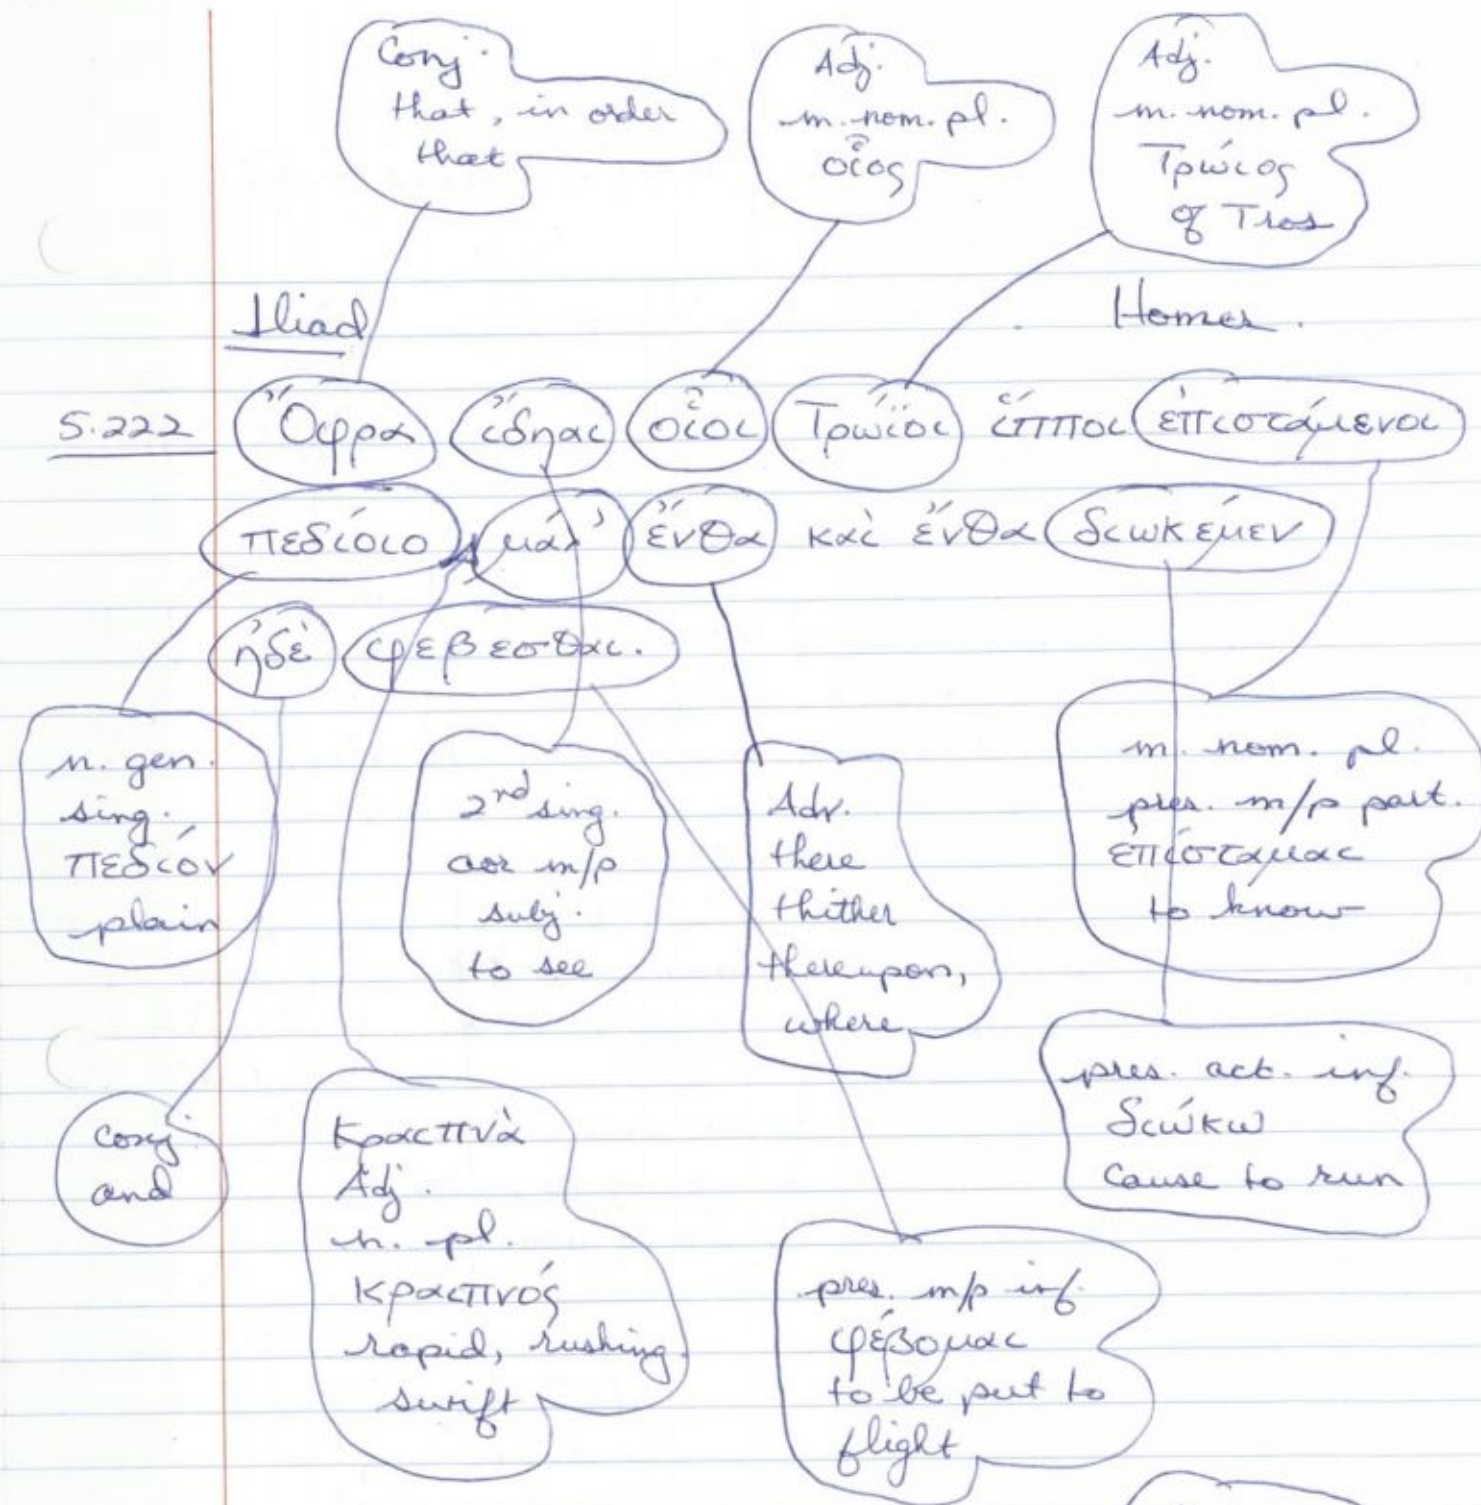 Conj.
that, in order
that
Adj.
m. nom. pl.
οἷος
Adj.
m. nom. pl.
Τρώιος
of Tros
Iliad
Homer.
5.222 Ὄφρα ἴδηαι οἷοι Τρώϊοι ἵπποι ἐπιστάμενοι
πεδίοιο μάλ' ἔνθα καὶ ἔνθα διωκέμεν
ἠδὲ φέβεσθαι.
n. gen.
sing.
πεδίόν
plain
2nd sing.
aor m/p
subj.
to see
Adv.
there
thither
thereupon,
where
m. nom. pl.
pres. m/p part.
ἐπίσταμαι
to know
pres. act. inf.
διώκω
cause to run
conj.
and
Κραιπνὰ
Adj.
n. pl.
κραιπνός
rapid, rushing
swift
pres. m/p inf.
φέβομαι
to be put to
flight